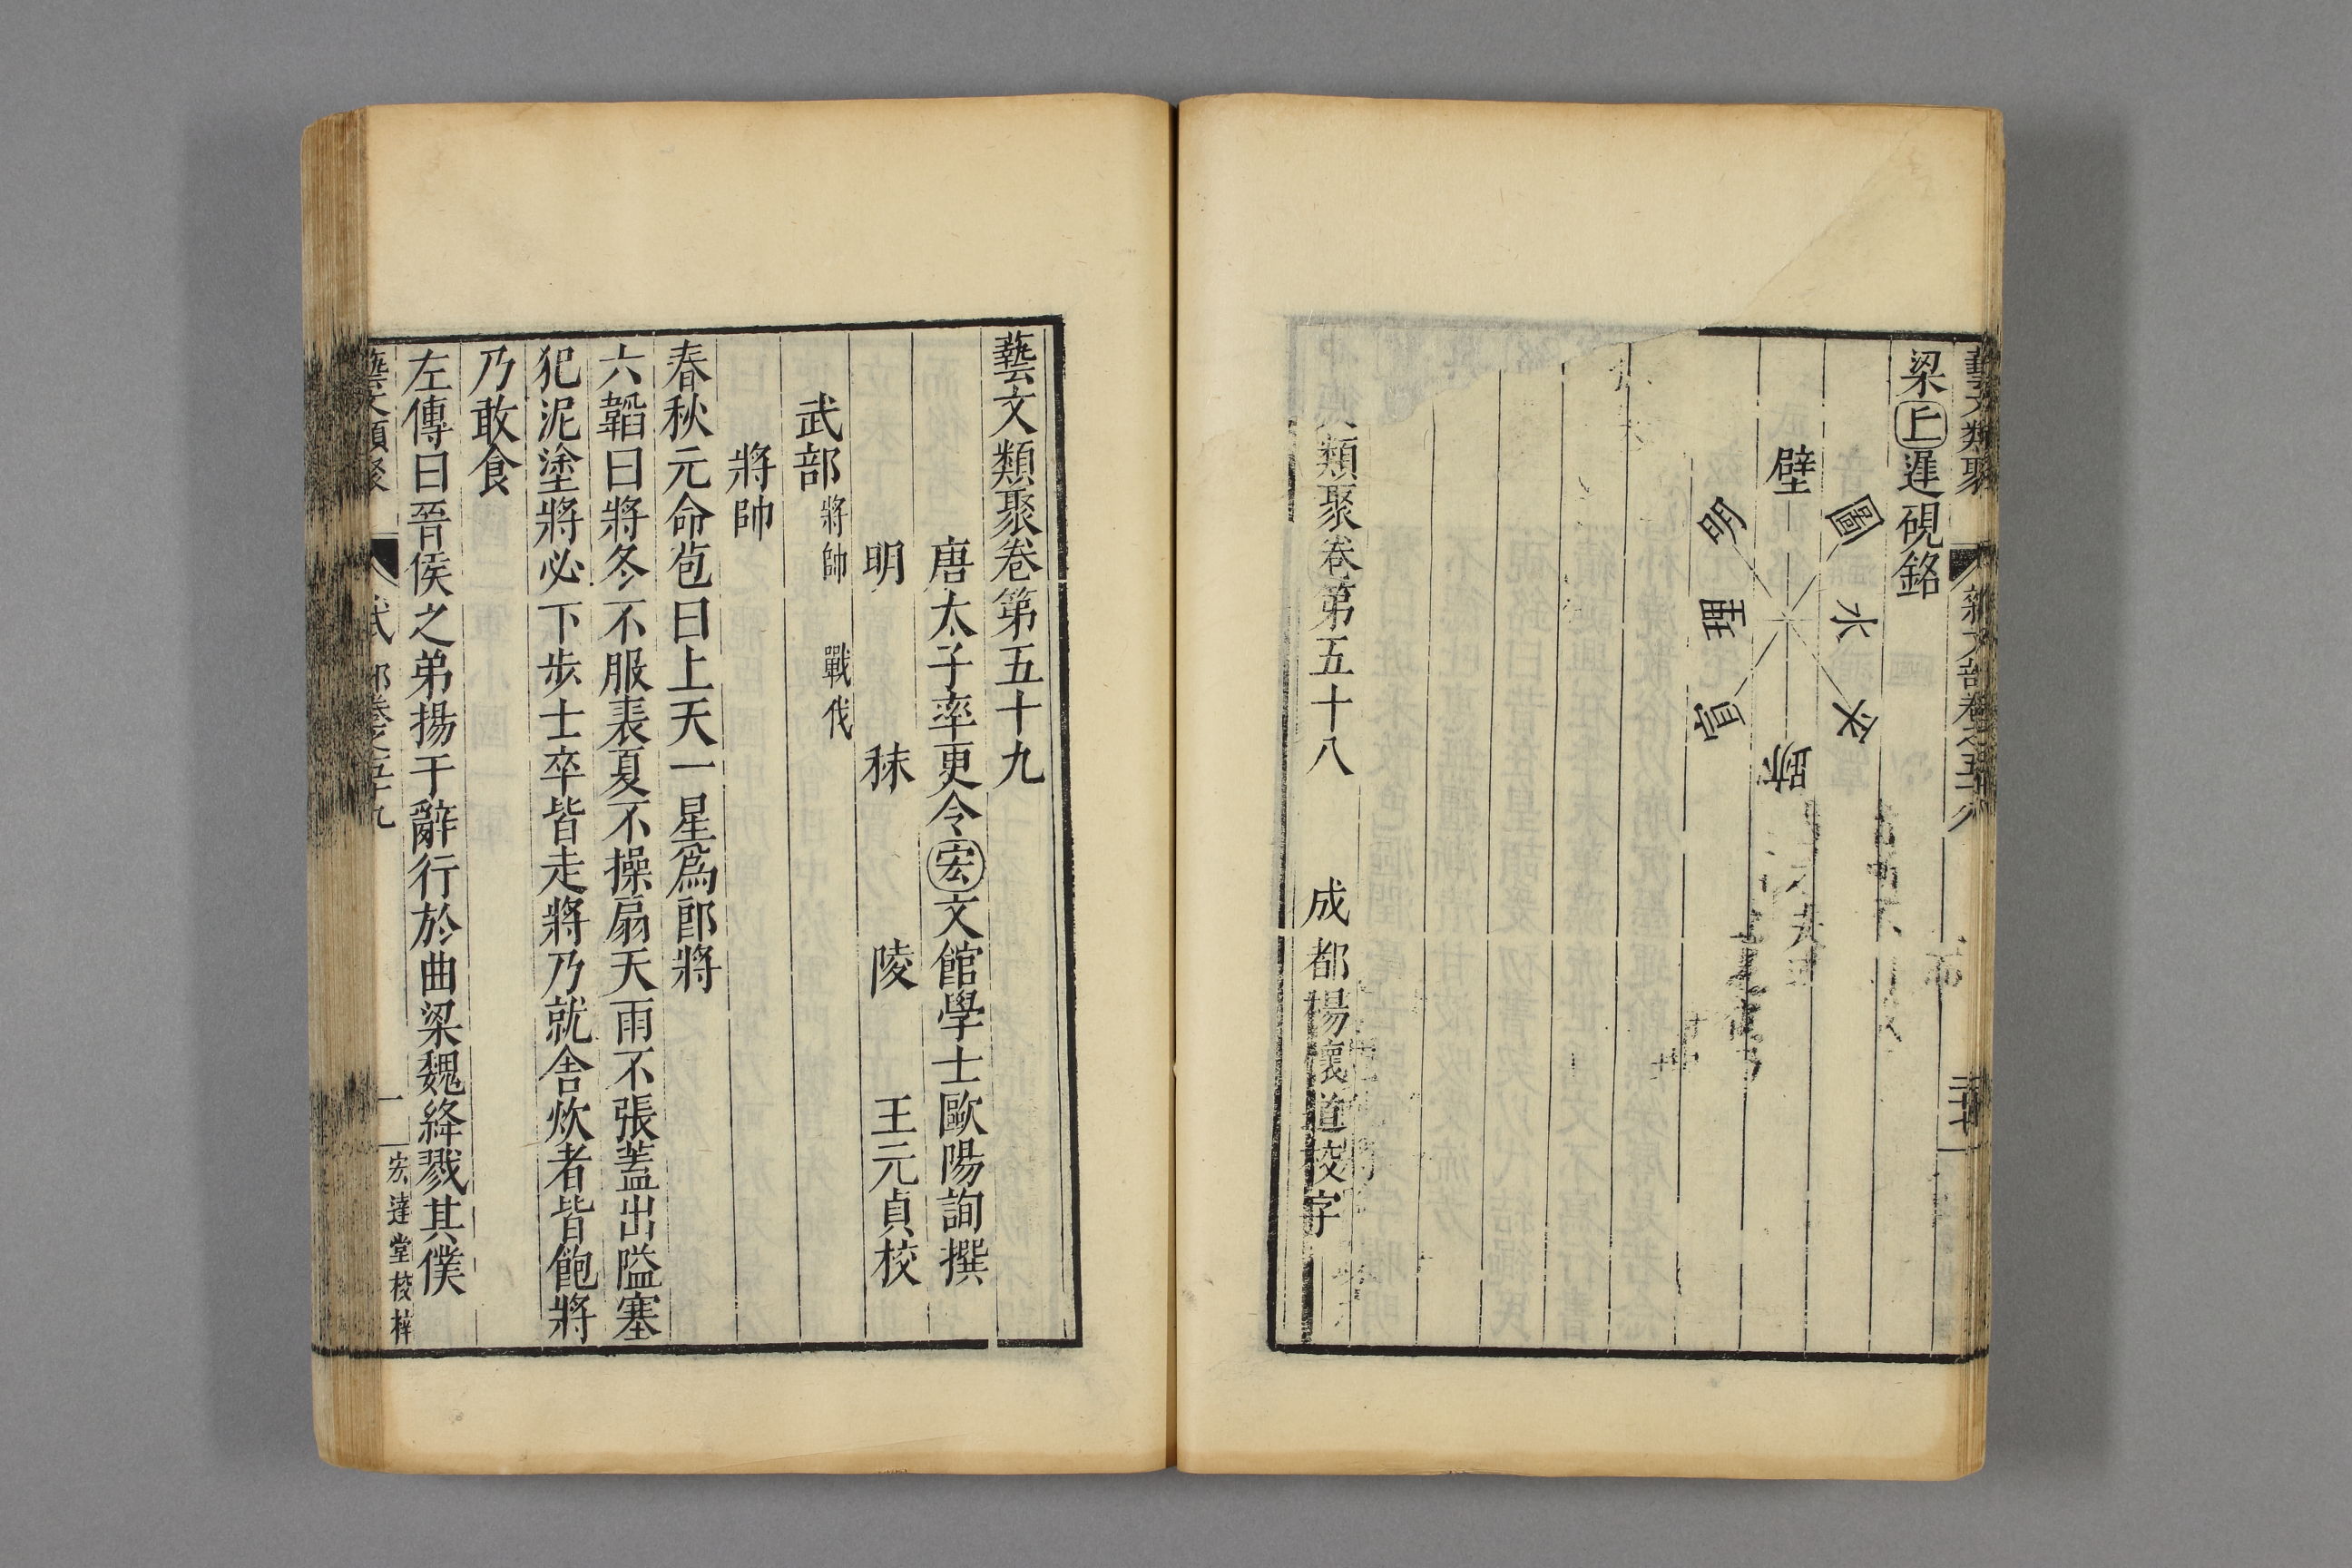 藝文類聚 雜文部卷之五十八
梁丘遲硯銘
壁
圓
水
平
跡
宣
理
明
類聚卷第五十八 成都楊懷道校字
藝文類聚卷第五十九
唐太子率更令宏文館學士歐陽詢撰
明 秣 陵 王元貞校
武部 將帥 戰伐
將帥
春秋元命苞曰上天一星爲郎將
六韜曰將冬不服裘夏不操扇天雨不張蓋出隘塞
犯泥塗將必下步士卒皆走將乃就舍炊者皆飽將
乃敢食
左傳曰晉侯之弟揚干辭行於曲梁魏絳戮其僕
藝文類聚 武部卷之五十九 一 宏達堂校梓